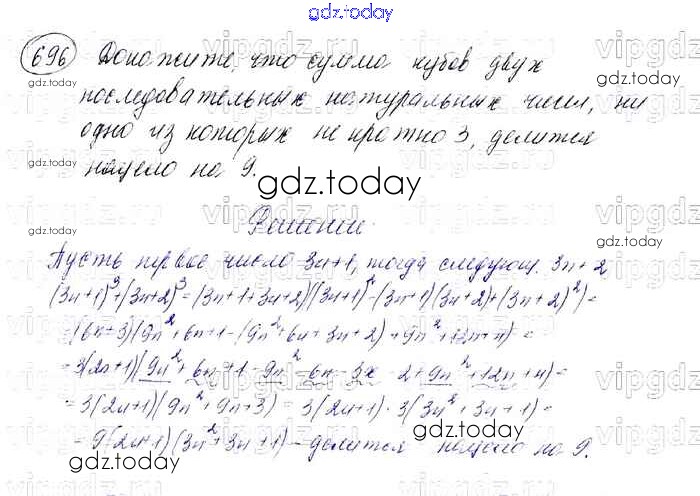 gdz.today
696 Докажите, что сумма кубов двух
последовательных натуральных чисел, ни
одно из которых не кратно 3, делится
нацело на 9.
Решение.
Пусть первое число 3n+1, тогда следующ. 3n+2
(3n+1)³+(3n+2)³=(3n+1+3n+2)((3n+1)²-(3n+1)(3n+2)+(3n+2)²)=
=(6n+3)(9n²+6n+1-(9n²+6n+3n+2)+9n²+12n+4)=
=3(2n+1)(9n²+6n+1-9n²-6n-3n-2+9n²+12n+4)=
=3(2n+1)(9n²+9n+3)=3(2n+1)·3(3n²+3n+1)=
=9(2n+1)(3n²+3n+1)-делится нацело на 9.
gdz.today
gdz.today
gdz.today
gdz.today
gdz.today
gdz.today
gdz.today
gdz.today